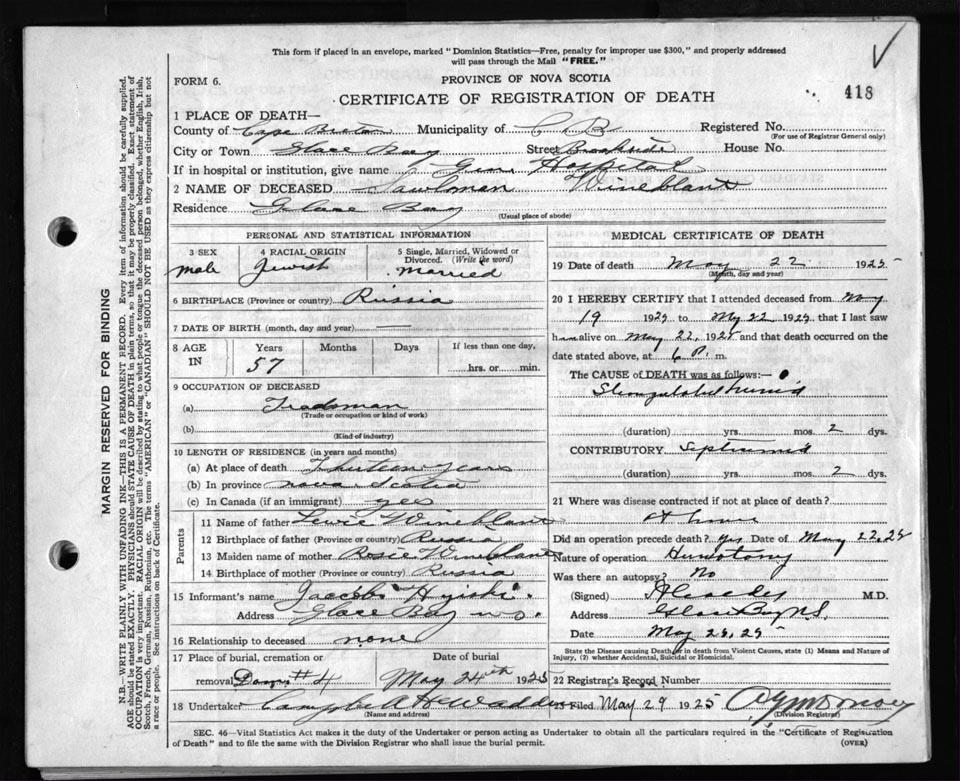 This form if placed in an envelope, marked "Dominion Statistics—Free, penalty for improper use $300," and properly addressed
will pass through the Mail "FREE."
FORM 6.
PROVINCE OF NOVA SCOTIA
CERTIFICATE OF REGISTRATION OF DEATH
418
1 PLACE OF DEATH—
County of Cape Breton Municipality of C B Registered No.
(For use of Registrar General only)
City or Town Glace Bay Street Brookside House No.
If in hospital or institution, give name Gen. Hospital
2 NAME OF DECEASED Sawloman Wineblant
Residence Glace Bay
(Usual place of abode)
PERSONAL AND STATISTICAL INFORMATION
3 SEX
male
4 RACIAL ORIGIN
Jewish
5 Single, Married, Widowed or
Divorced. (Write the word)
married
6 BIRTHPLACE (Province or country) Russia
7 DATE OF BIRTH (month, day and year) —
8 AGE IN Years Months Days If less than one day,
57 hrs. or min.
9 OCCUPATION OF DECEASED
(a) Tradsman
(Trade or occupation or kind of work)
(b)
(Kind of industry)
10 LENGTH OF RESIDENCE (in years and months)
(a) At place of death Thirteen years
(b) In province Nova Scotia
(c) In Canada (if an immigrant) yes
Parents
11 Name of father Lewie Wineblant
12 Birthplace of father (Province or country) Russia
13 Maiden name of mother Rosie Wineblant
14 Birthplace of mother (Province or country) Russia
15 Informant's name Jacob
Address Glace Bay
16 Relationship to deceased none
17 Place of burial, cremation or
removal Dom #4
Date of burial
May 24th 1925
18 Undertaker Campbell
(Name and address)
MEDICAL CERTIFICATE OF DEATH
19 Date of death May 22 1925
(Month, day and year)
20 I HEREBY CERTIFY that I attended deceased from May
19 1925 to My 22 1925, that I last saw
him alive on May 22, 1925 and that death occurred on the
date stated above, at 6 P. m.
The CAUSE of DEATH was as follows:—
(duration) yrs. mos. 2 dys.
CONTRIBUTORY
(duration) yrs. mos. 2 dys.
21 Where was disease contracted if not at place of death?
At home
Did an operation precede death? Yes Date of May 22, 25
Nature of operation
Was there an autopsy? No
(Signed) M.D.
Address Glace Bay N.S.
Date May 23, 25
State the Disease causing Death, or in death from Violent Causes, state (1) Means and Nature of
Injury, (2) whether Accidental, Suicidal or Homicidal.
22 Registrar's Record Number
23 Filed May 29 1925
(Division Registrar)
SEC. 46—Vital Statistics Act makes it the duty of the Undertaker or person acting as Undertaker to obtain all the particulars required in the "Certificate of Registration
of Death" and to file the same with the Division Registrar who shall issue the burial permit.
(OVER)
MARGIN RESERVED FOR BINDING
N.B.—WRITE PLAINLY WITH UNFADING INK—THIS IS A PERMANENT RECORD. Every item of information should be carefully supplied.
AGE should be stated EXACTLY. PHYSICIANS should STATE CAUSE OF DEATH in plain terms, so that it may be properly classified. Exact statement of
OCCUPATION is very important. RACIAL ORIGIN will be described by stating to what people or tongue the deceased person belonged, whether English, Irish,
Scotch, French, German, Russian, Ruthenian, etc. The terms "AMERICAN" or "CANADIAN" SHOULD NOT BE USED as they express citizenship but not
a race or people. See instructions on back of Certificate.